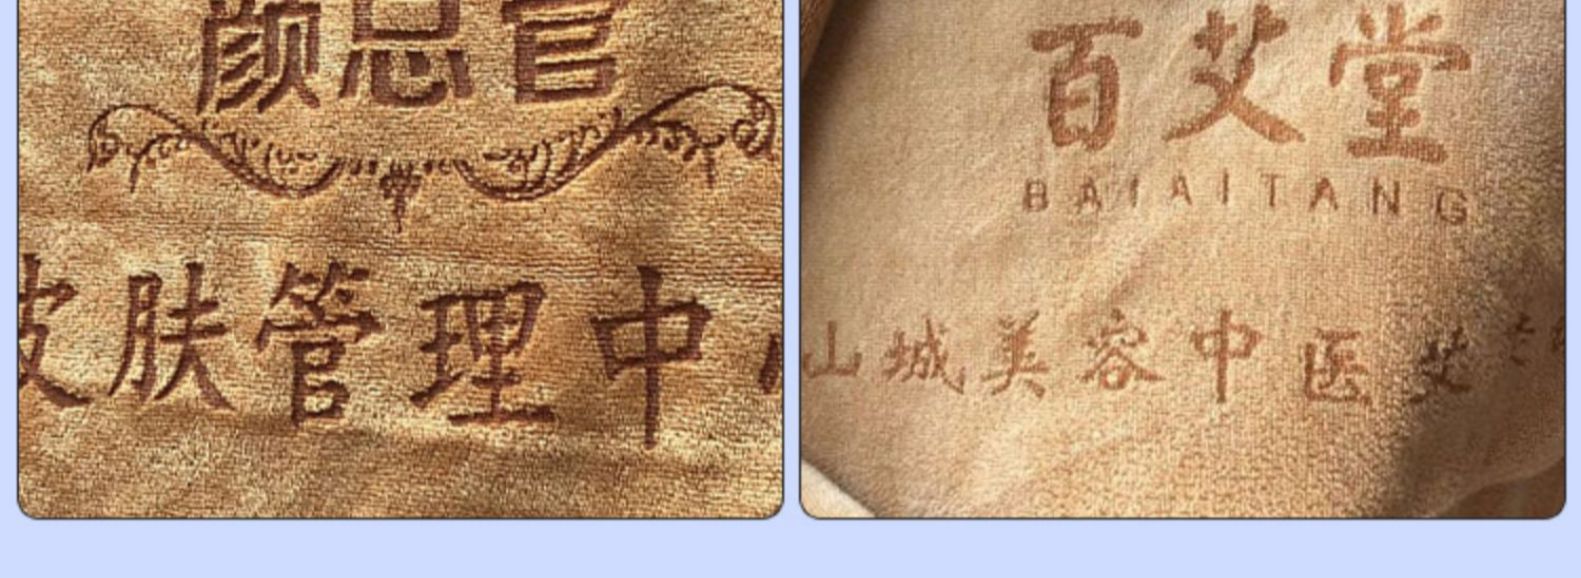 颜总管
皮肤管理中
百艾堂
BAIAITANG
山城美容中医艾